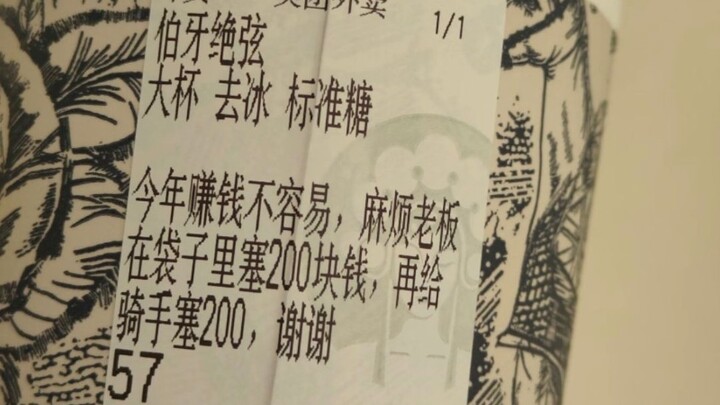 美团外卖
1/1
伯牙绝弦
大杯 去冰 标准糖
今年赚钱不容易，麻烦老板
在袋子里塞200块钱，再给
骑手塞200，谢谢
57